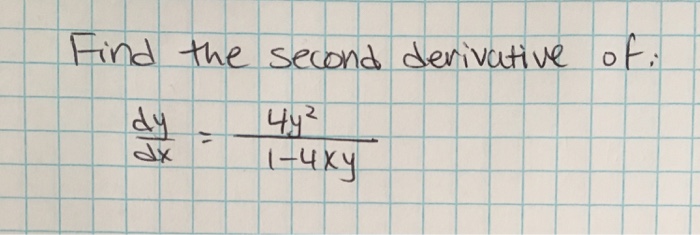 Find the second derivative of:
dy/dx = 4y²/1-4xy